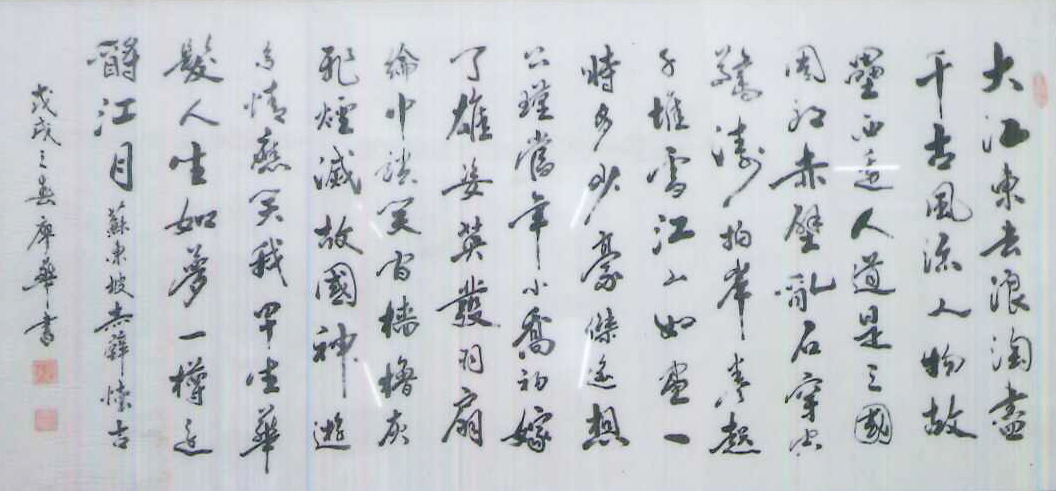 大江東去浪淘盡
千古風流人物故
壘西邊人道是三國
周郎赤壁亂石穿空
驚濤拍岸卷起
千堆雪江山如畫一
時多少豪傑遙想
公瑾當年小喬初嫁
了雄姿英發羽扇
綸巾談笑間檣櫓灰
飛煙滅故國神遊
多情應笑我早生華
髮人生如夢一樽還
酹江月蘇東坡赤壁懷古
戊戌三春廖華書